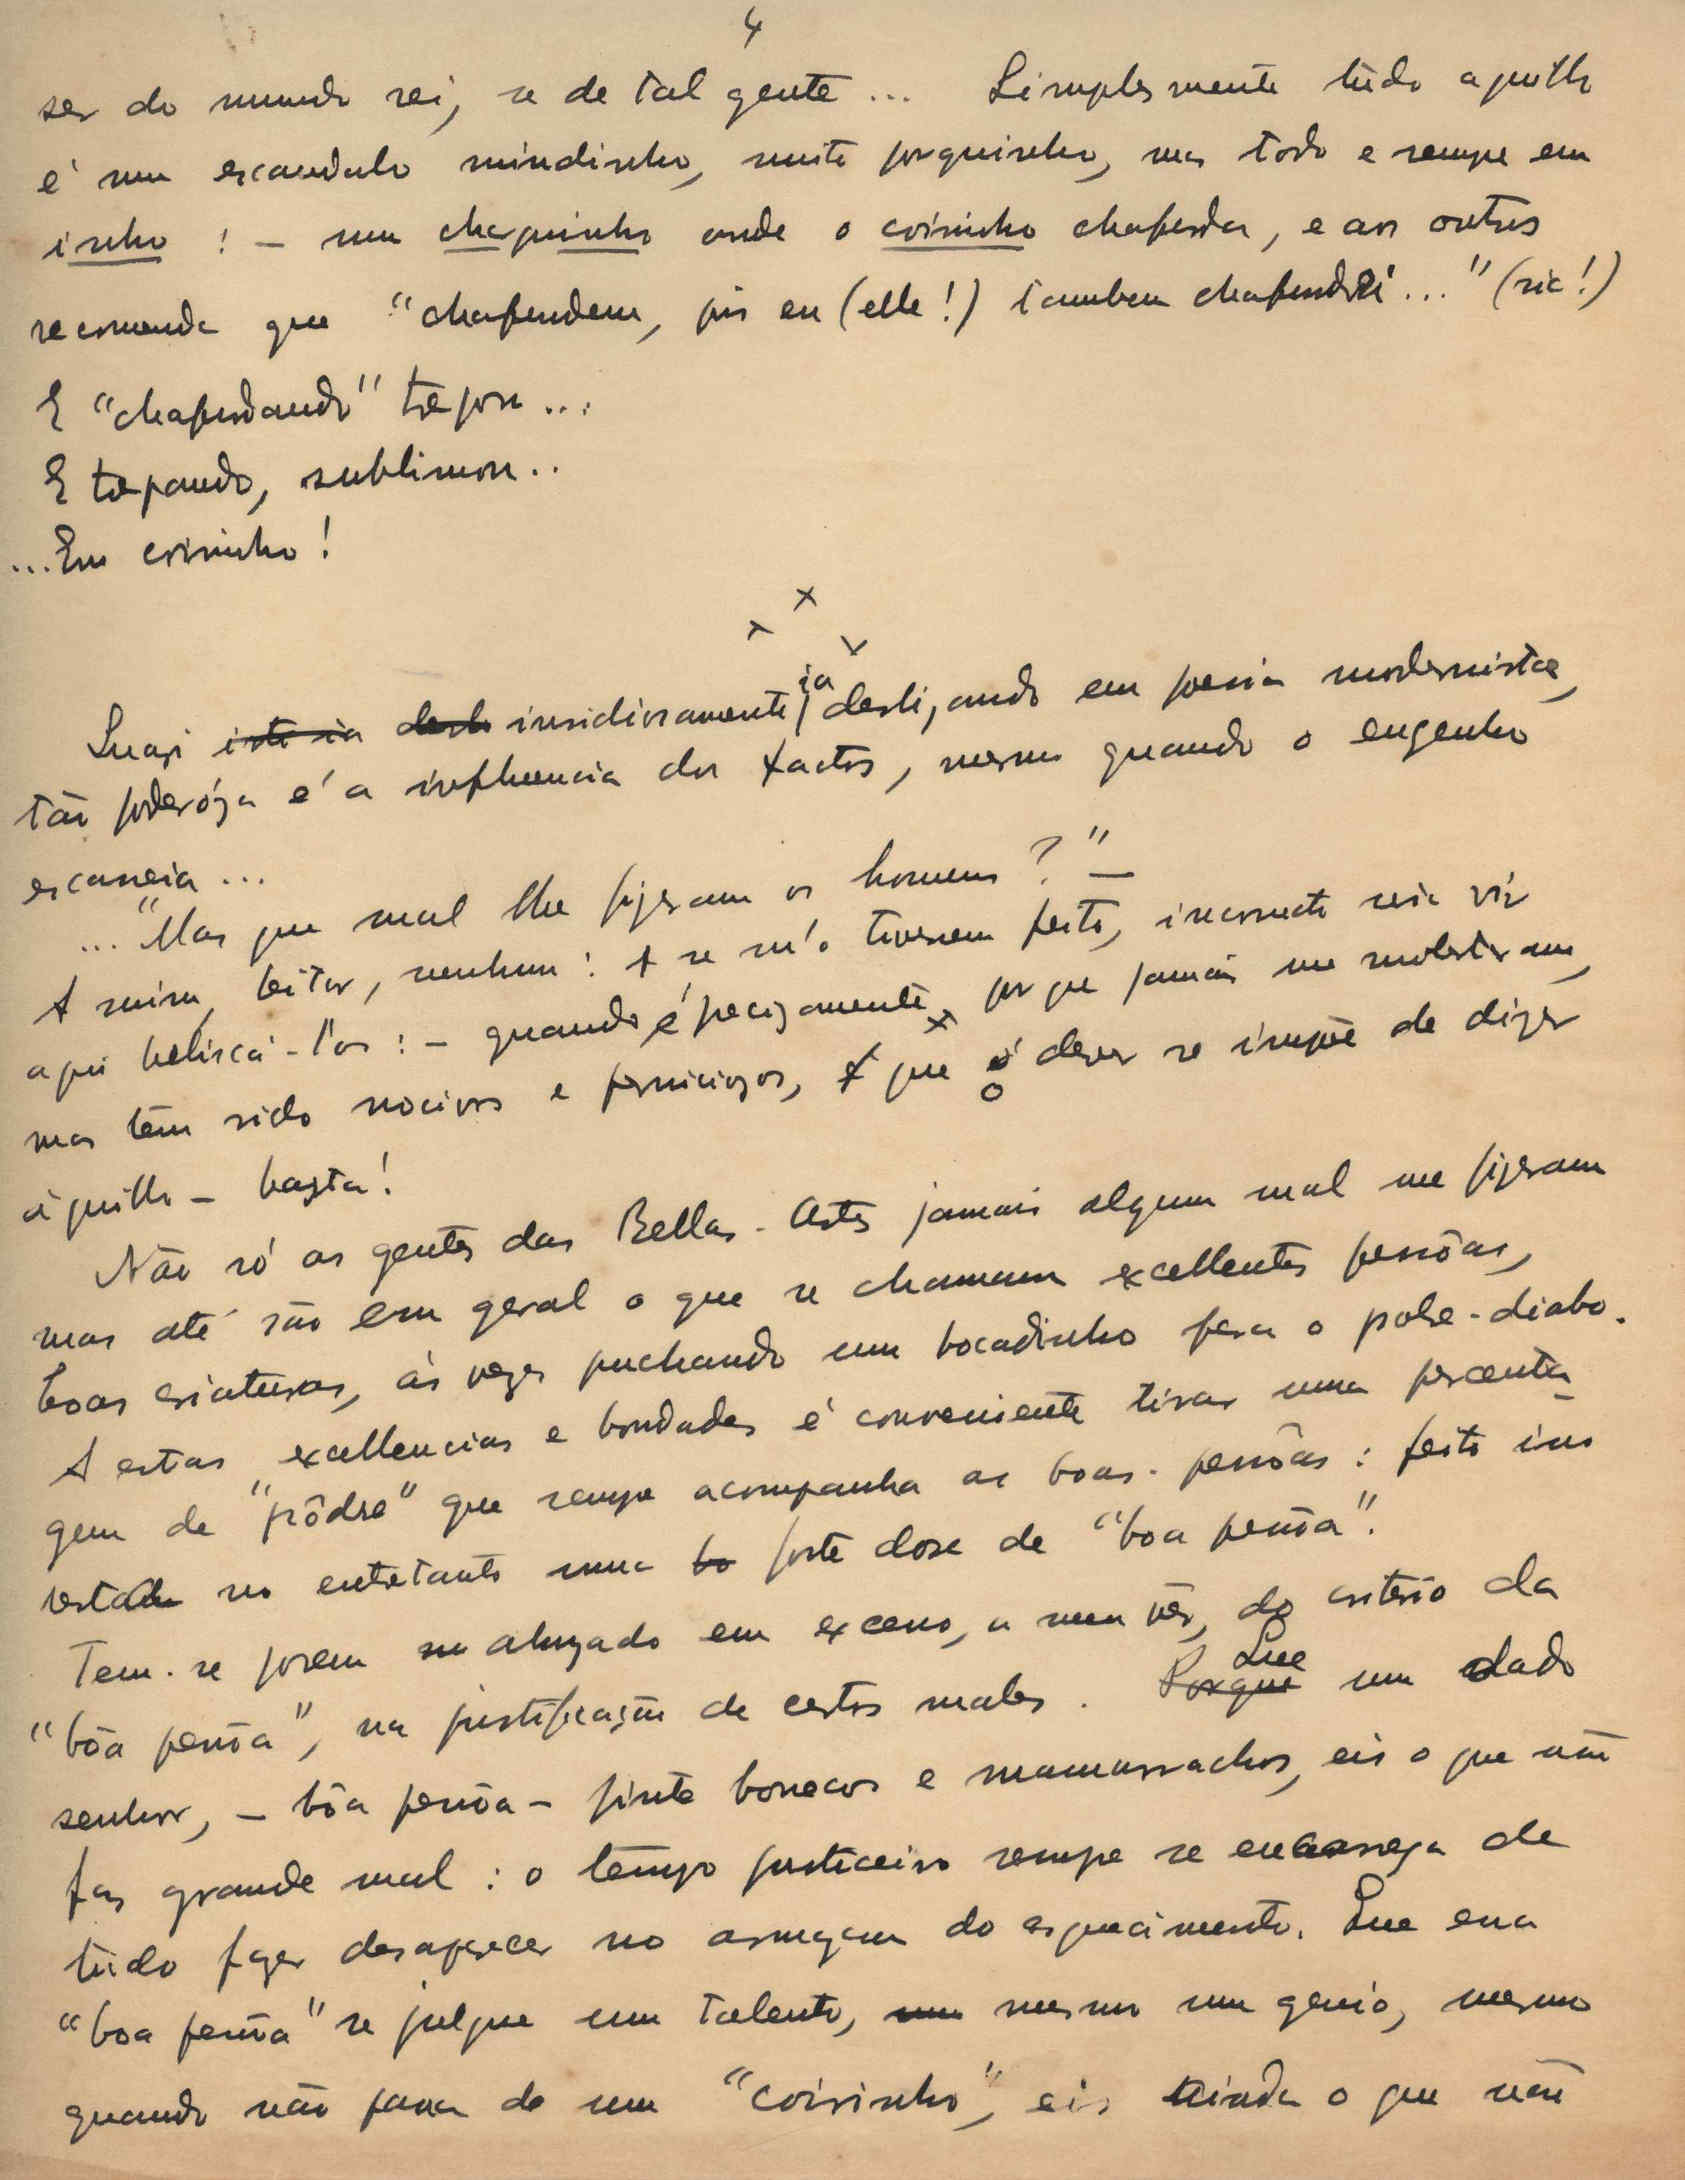 4
ser do mundo rei, se de tal gente ... Simplesmente tudo aquillo
é um escandalo mindinho, muito porquinho, mas todo e sempre em
inho : – um charquinho onde o coisinho chafurda, e aos outros
recomenda que "chafurdem, pois eu (elle!) tambem chafurdei ..." (sic!)
E "chafurdando" trepou ...
E trepando, sublimou ..
... Em coisinho !
x x x
Quasi insidiosamente, ia deslizando em poesia modernista,
tão poderóza é a influencia dos factos, mesmo quando o engenho
escasseia ...
... "Mas que mal lhe fizeram os homens ? " –
A mim, leitor, nenhum : e se m'o tivessem feito, incorrecto seria vir
aqui beliscá-l'os : – quando é precizamente porque jamais me molestaram,
mas têm sido nocivos e perniciozos, que o dever se impõe de dizer
áquillo – basta !
Não só as gentes das Bellas-Artes jamais algum mal me fizeram
mas até são em geral o que se chamam excellentes pessôas,
boas criaturas, ás vezes puchando um bocadinho para o pobre-diabo.
A estas excellencias e bondades é conveniente tirar uma percenta-
gem de "pôdre" que sempre acompanha as boas-pessôas : feito isso
resta no entretanto uma forte dose de "boa pessôa".
Tem-se porem abuzado em excesso, a meu vêr, do criterio da
"bôa pessôa", na justificação de certos males. Que um dado
senhor, – bôa pessôa – pinte bonecos e mamarrachos, eis o que não
faz grande mal : o tempo justiceiro sempre se encarrega de
tudo fazer desaparecer no armazem do esquecimento. Que essa
"boa pessôa" se julgue um talento, mesmo um genio, mesmo
quando não passa de um "coisinho", eis ainda o que não